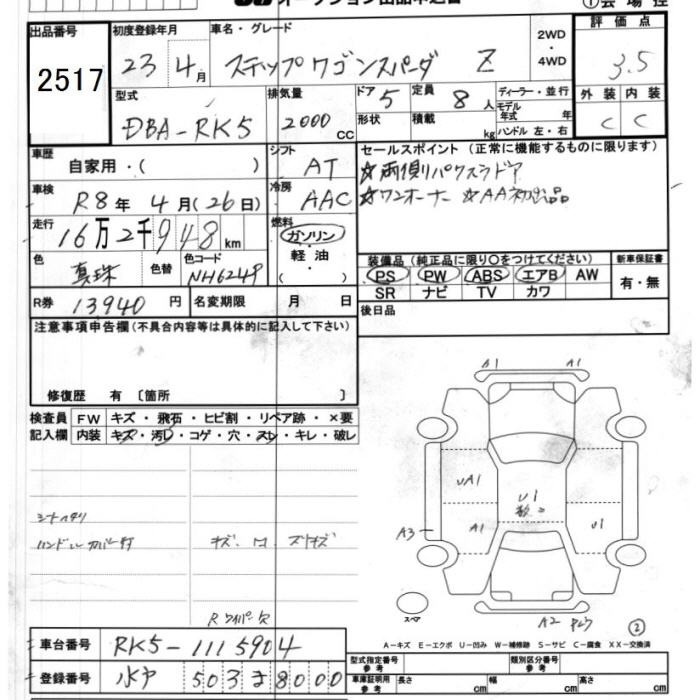 ①会場控
出品番号 2517
初度登録年月 23年4月
車名・グレード ステップワゴンスパーダ Z
2WD・4WD
評価点 3.5
型式 DBA-RK5
排気量 2000 CC
ドア 5 定員 8人
形状 積載 kg
ディーラー・並行
モデル年式 年
ハンドル 左・右
外装 内装
C C
車歴 自家用・( )
シフト AT
車検 R8年4月(26日)
冷房 AAC
走行 16万2千948km
燃料 ガソリン・軽油・( )
色 真珠 色替
色コード NH624P
R券 13940円
名変期限 月 日
セールスポイント(正常に機能するものに限ります)
☆両側パワスラドア
☆ワンオーナー ☆AA初出品
装備品(純正品に限り○をつけてください)
PS PW ABS エアB AW
SR ナビ TV カワ
新車保証書
有・無
後日品
注意事項申告欄(不具合内容等は具体的に記入して下さい)
修復歴 有〔箇所 〕
検査員記入欄
FW キズ・飛石・ヒビ割・リペア跡・×要
内装 キズ・汚レ・コゲ・穴・スレ・キレ・破レ
シートヘタリ
ハンドルカバー付
キズ
Rワイパー欠
A1 A1
UA1
U1
A1
U1
A3
A2
スペア
②
A-キズ E-エクボ U-凹み W-補修跡 S-サビ C-腐食 XX-交換済
車台番号 RK5-1115904
登録番号 水戸 503 ま 8000
型式指定番号 参考
類別区分番号 参考
車庫証明用 参考 長さ cm 幅 cm 高さ cm